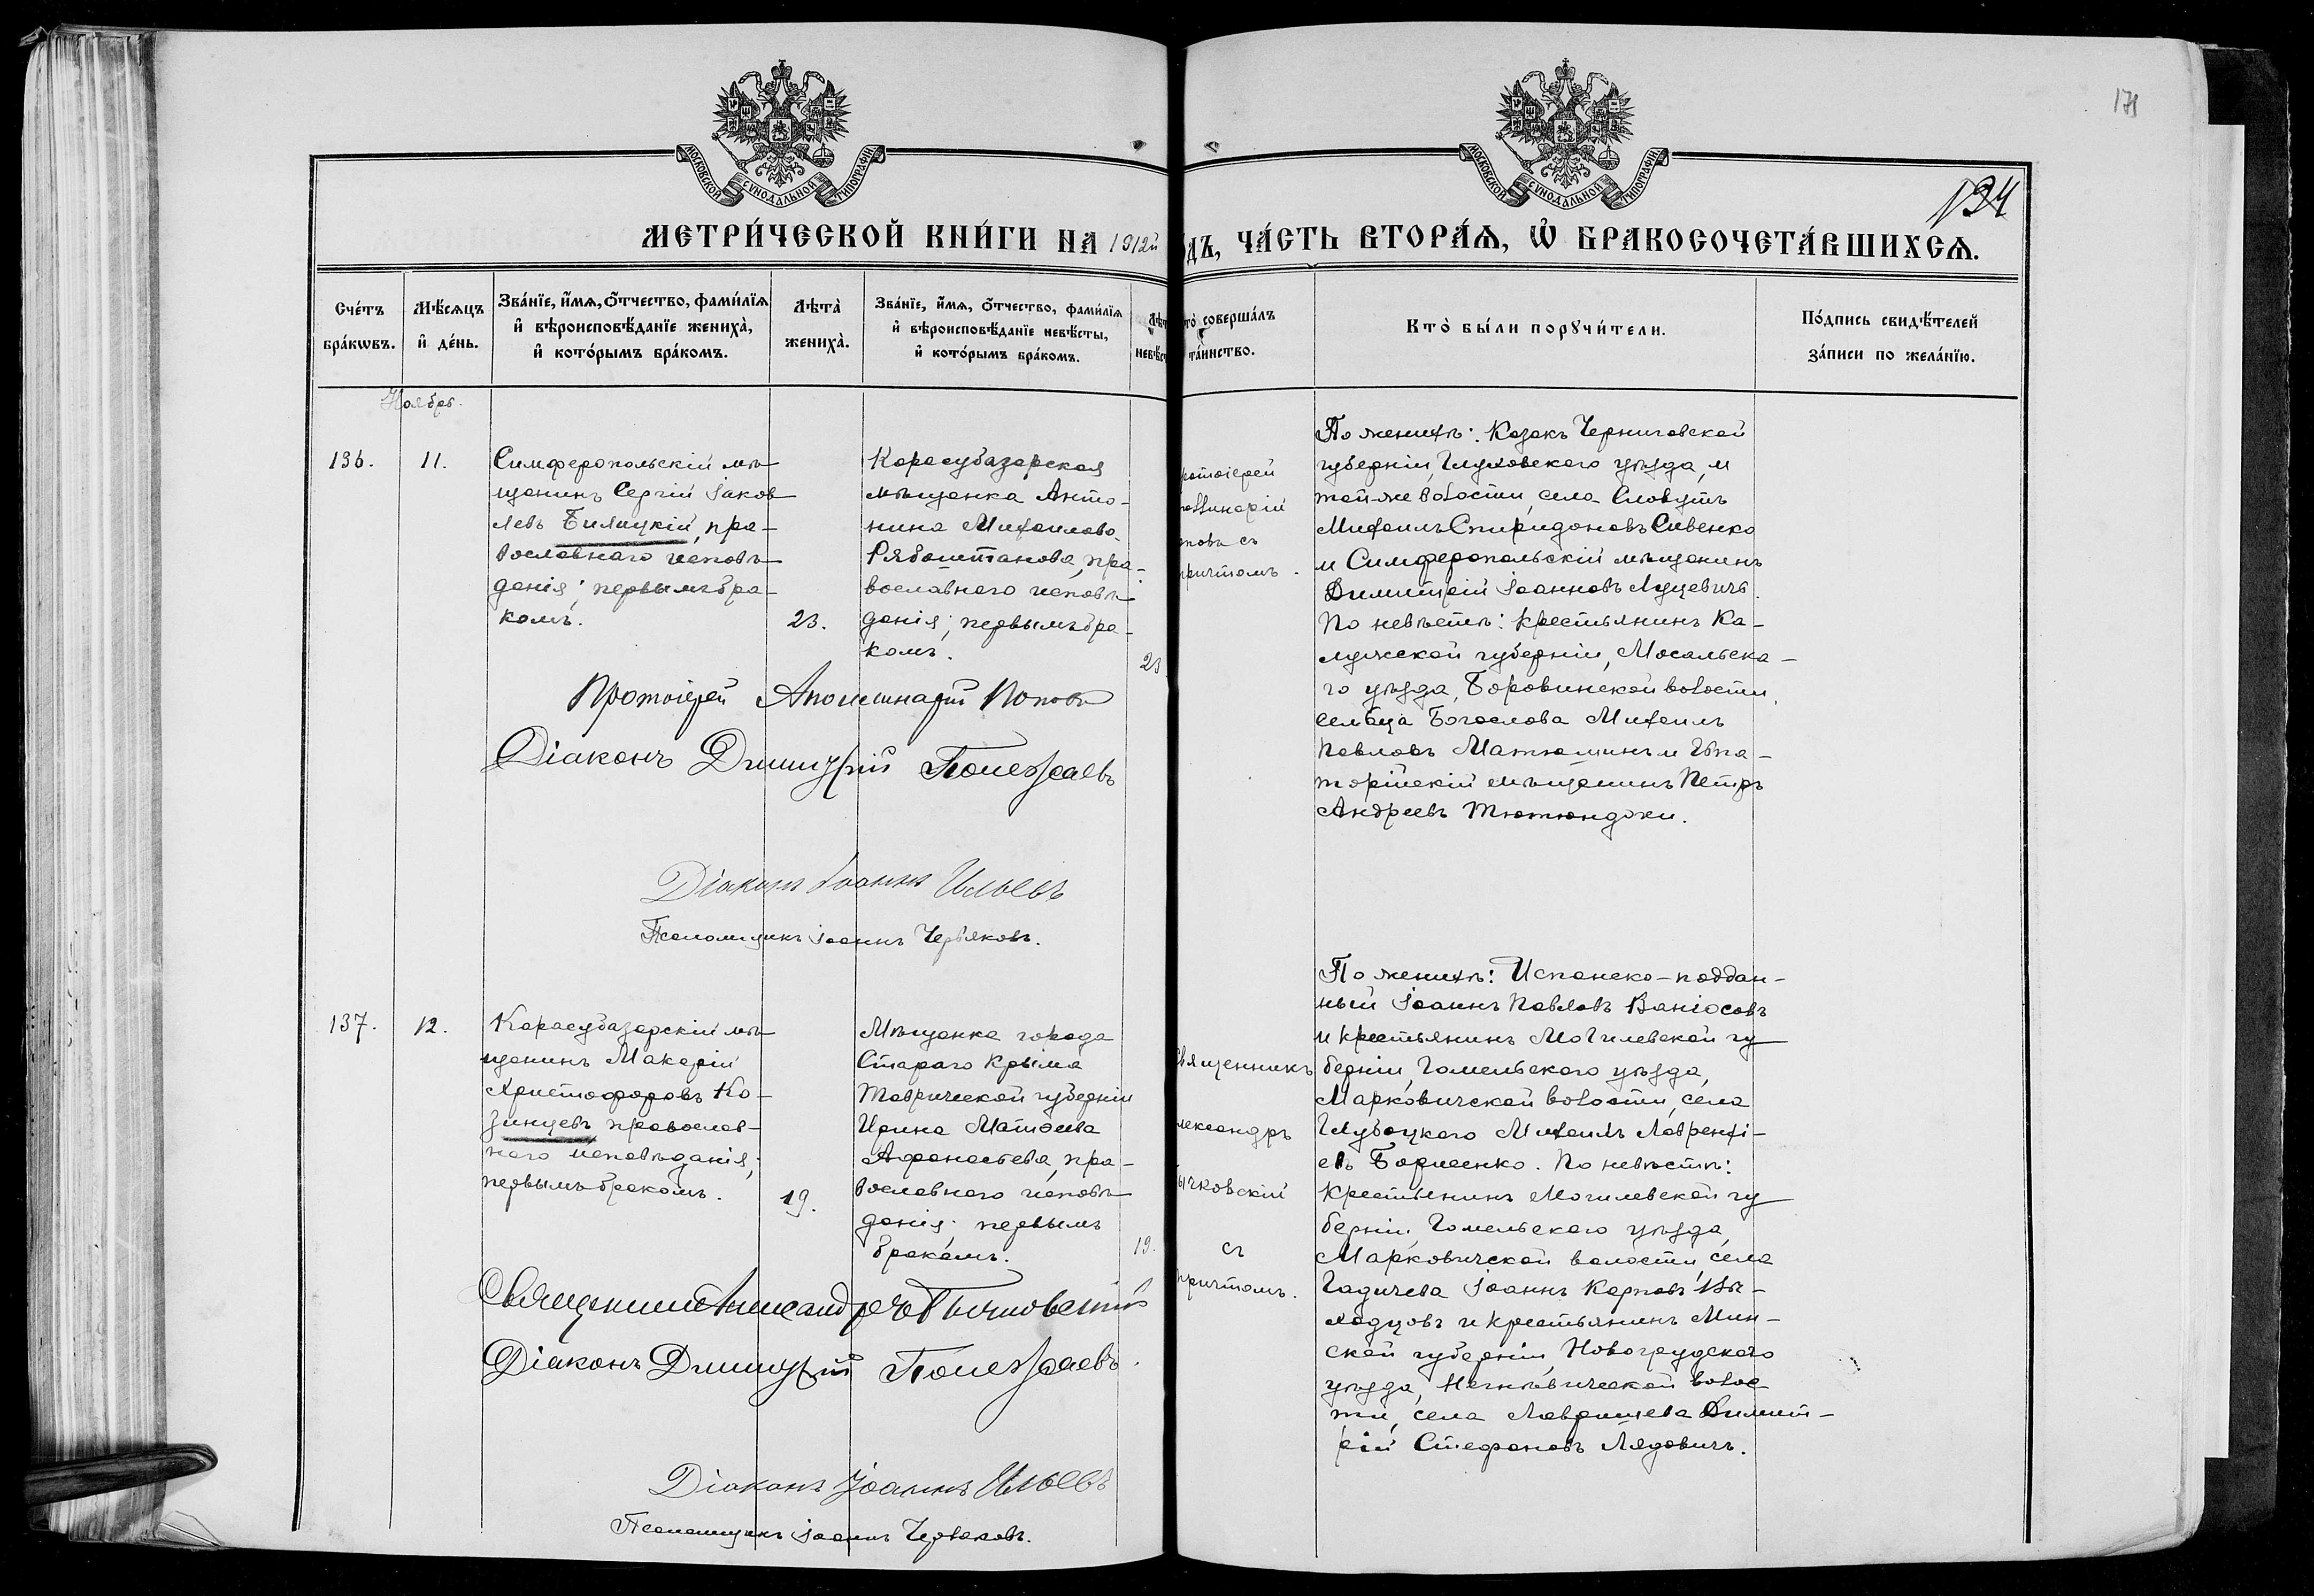 171
134
МОСКОВСКОЙ СѴНОДАЛЬНОЙ ТИПОГРАФІИ
МОСКОВСКОЙ СѴНОДАЛЬНОЙ ТИПОГРАФІИ
МЕТРИ́ЧЕСКОЙ КНИ́ГИ НА 1912й
ДЪ, ЧА́СТЬ ВТОРА́Я, Ѡ БРАКОСОЧЕТА́ВШИХСѦ.
Сче́тъ бра́кѡвъ.
Мѣ́сяцъ и҆ де́нь.
Зва́нїе, и҆́мя, ѻ҆́тчество, фами́лїя
и҆ вѣроисповѣ́данїе жениха̀,
и҆ кото́рымъ бра́комъ.
Лѣта̀ жениха̀.
Зва́нїе, и҆́мя, ѻ҆́тчество, фами́лїя
и҆ вѣроисповѣ́данїе невѣ́сты,
и҆ кото́рымъ бра́комъ.
Лѣт
невѣ́ст
то̀ соверша́лъ
та́инство.
Кто̀ бы́ли порꙋчи́тели.
По́дпись свидѣ́телей
за́писи по жела́нїю.
Ноябрь.
136.
11.
Симферопольскій мѣ-
щанинъ Сергій Іаков
левъ Билицкій, пра-
вославнаго исповѣ-
данія; первымъ бра-
комъ.
23.
Карасубазарская
мѣщанка Анто-
нина Михаилова
Рябоштанова, пра-
вославнаго исповѣ
данія; первымъ бра-
комъ.
21
ротоіерей
оллинарій
оповъ съ
причтомъ.
По женихѣ: Козакъ Черниговской
губерніи Глуховского уѣзда, и
той-же волости, села Словутъ
Михаилъ Спиридоновъ Сивенко
и Симферопольскій мѣщанинъ
Димитрій Іоанновъ Луцевичъ.
По невѣстѣ: крестьянинъ Ка-
лужской губерніи, Мосальска-
го уѣзда, Боровинской волости,
сельца Богослова Михаилъ
Павловъ Матюшинъ и Евпа-
торійскій мѣщанинъ Петръ
Андреевъ Тютюнджи.
Протоіерей Аполлинарій Поповъ
Діаконъ Димитрій
Діаконъ Іоаннъ Ильевъ
Псаломщикъ Іоаннъ Червяковъ.
137.
12.
Карасубазарскій мѣ-
щанинъ Макарій
Христофоровъ Ко-
зинцевъ православ-
наго исповѣданія;
первымъ бракомъ.
19.
Мѣщанка города
Стараго Крыма
Таврической губерніи
Ирина Матѳеева
Афанасьева, пра-
вославнаго исповѣ
данія; первымъ
бракомъ.
19.
Священникъ
лександръ
ычковскій
съ
причтомъ.
По женихѣ: Испанско-поддан-
ный Іоаннъ Павловъ Ваніосовъ
и крестьянинъ Могилевской гу
берніи, Гомельского уѣзда,
Марковичской волости, села
Глубоцкого Михаилъ Лаврентi-
евъ Борисенко. По невѣстѣ:
крестьянинъ Могилевской гу
берніи, Гомельского уѣзда,
Марковичской волости, села
Гадичева Іоаннъ Карповъ
и крестьянинъ Мин-
ской губерніи, Новогрудского
уѣзда, волос
ти, села Лавришева Димит-
рій Стефановъ Лядовичъ.
Священникъ Александръ Бычковскій
Діаконъ Димитрій
Діаконъ Іоаннъ Ильевъ
Псаломщикъ Іоаннъ Червяковъ.